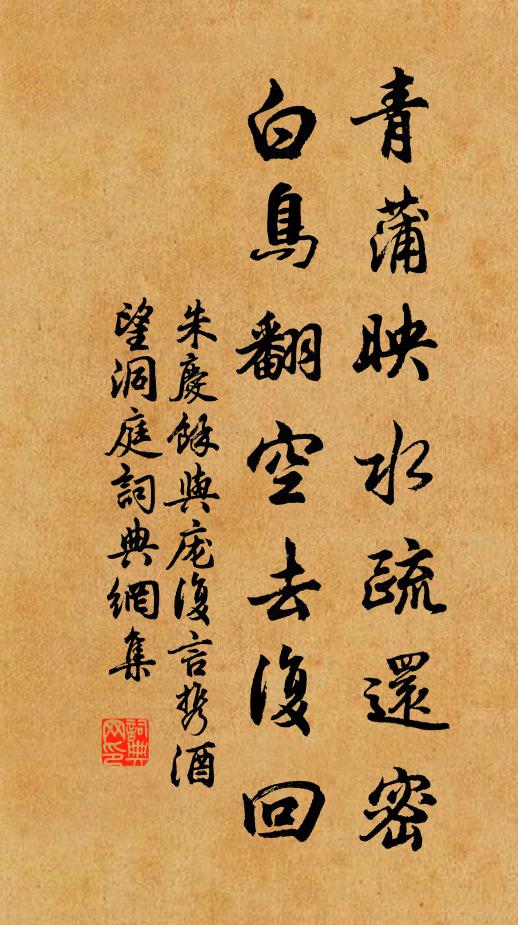 青蒲映水疏還密
白鳥翻空去復回
朱慶餘與龐復言携酒
望洞庭詞典網集
詞典
网印